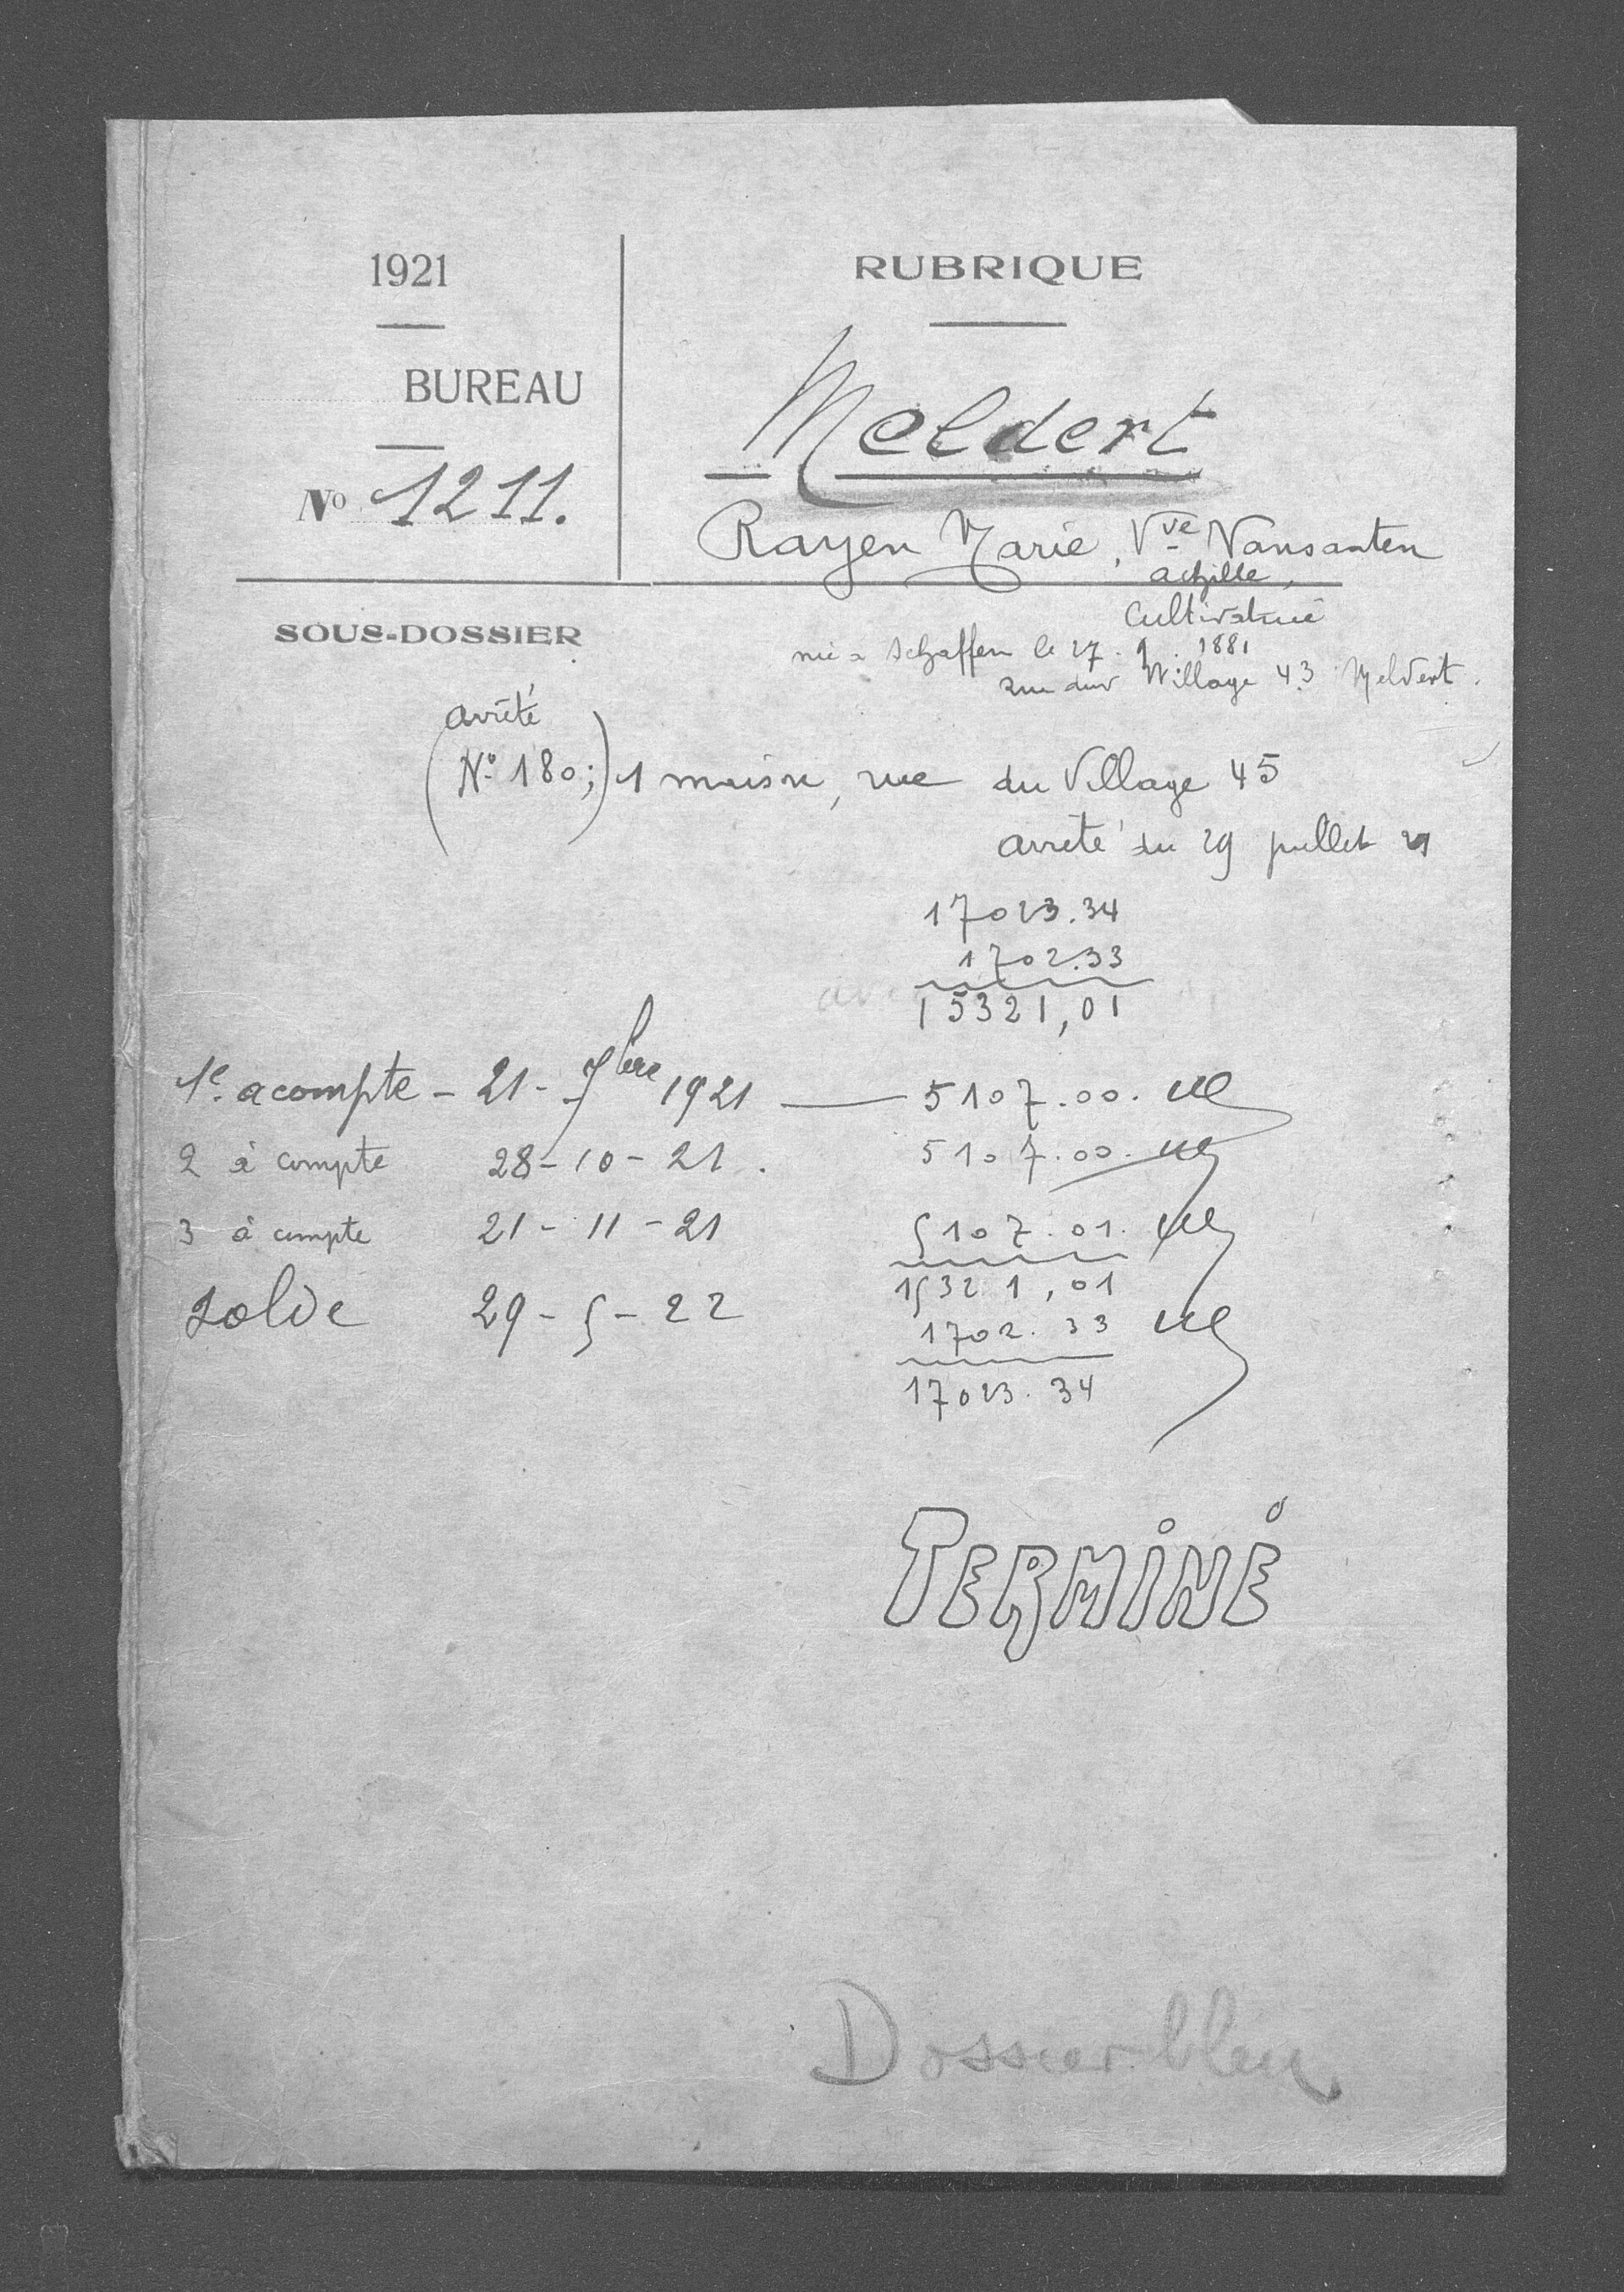 1921
BUREAU
No 1211.
RUBRIQUE
Meldert
Rayen Marie, Vve Vansanten
achille,
Cultivatrice
SOUS-DOSSIER
née à Schaffen le 27. 9. 1881
rue du Village 43 Meldert.
arrêté
(No 180;) 1 maison, rue du Village 45
arrêté du 29 juillet 21
17023.34
1702.33
15321,01
1e. acompte - 21 - 7bre 1921 — 5107.00.
2 à compte 28-10-21. 5107.00.
3 à compte 21-11-21 5107.01.
15321,01
Solde 29-5-22 1702.33
17023.34
TERMINÉ
Dossier bleu